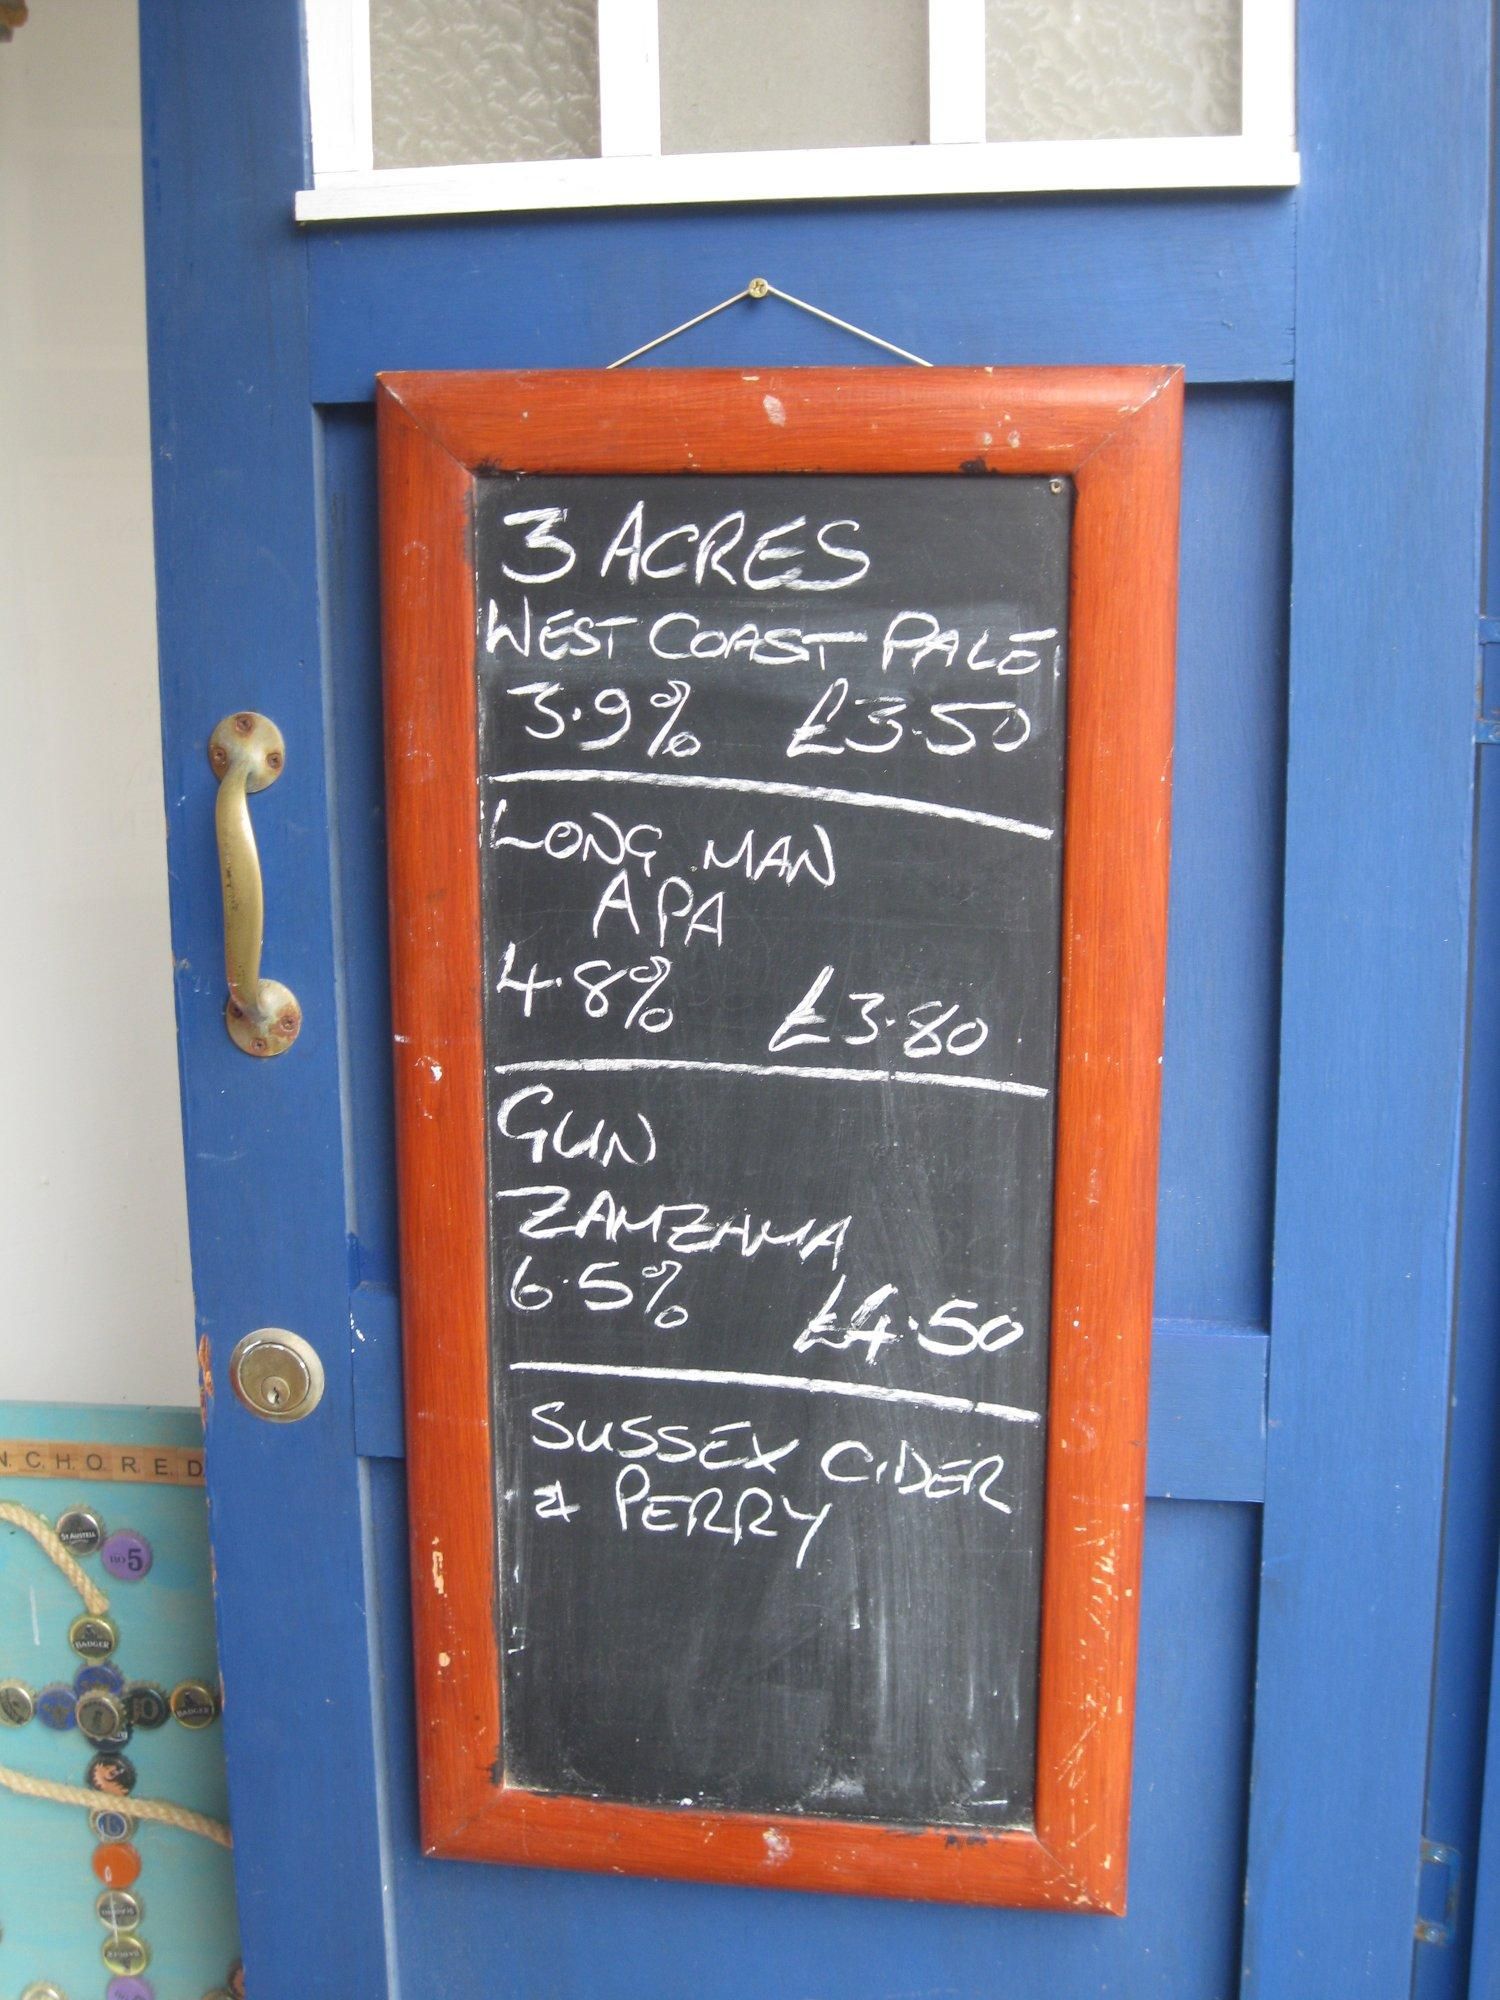 3 ACRES
WEST COAST PALE
3.9% £3.50
LONG MAN
APA
4.8% £3.80
GUN
ZAMZAMA
6.5% £4.50
SUSSEX CIDER
& PERRY
N.C.H.O.R.E.D
ST AUSTELL
5
BADGER
BADGER